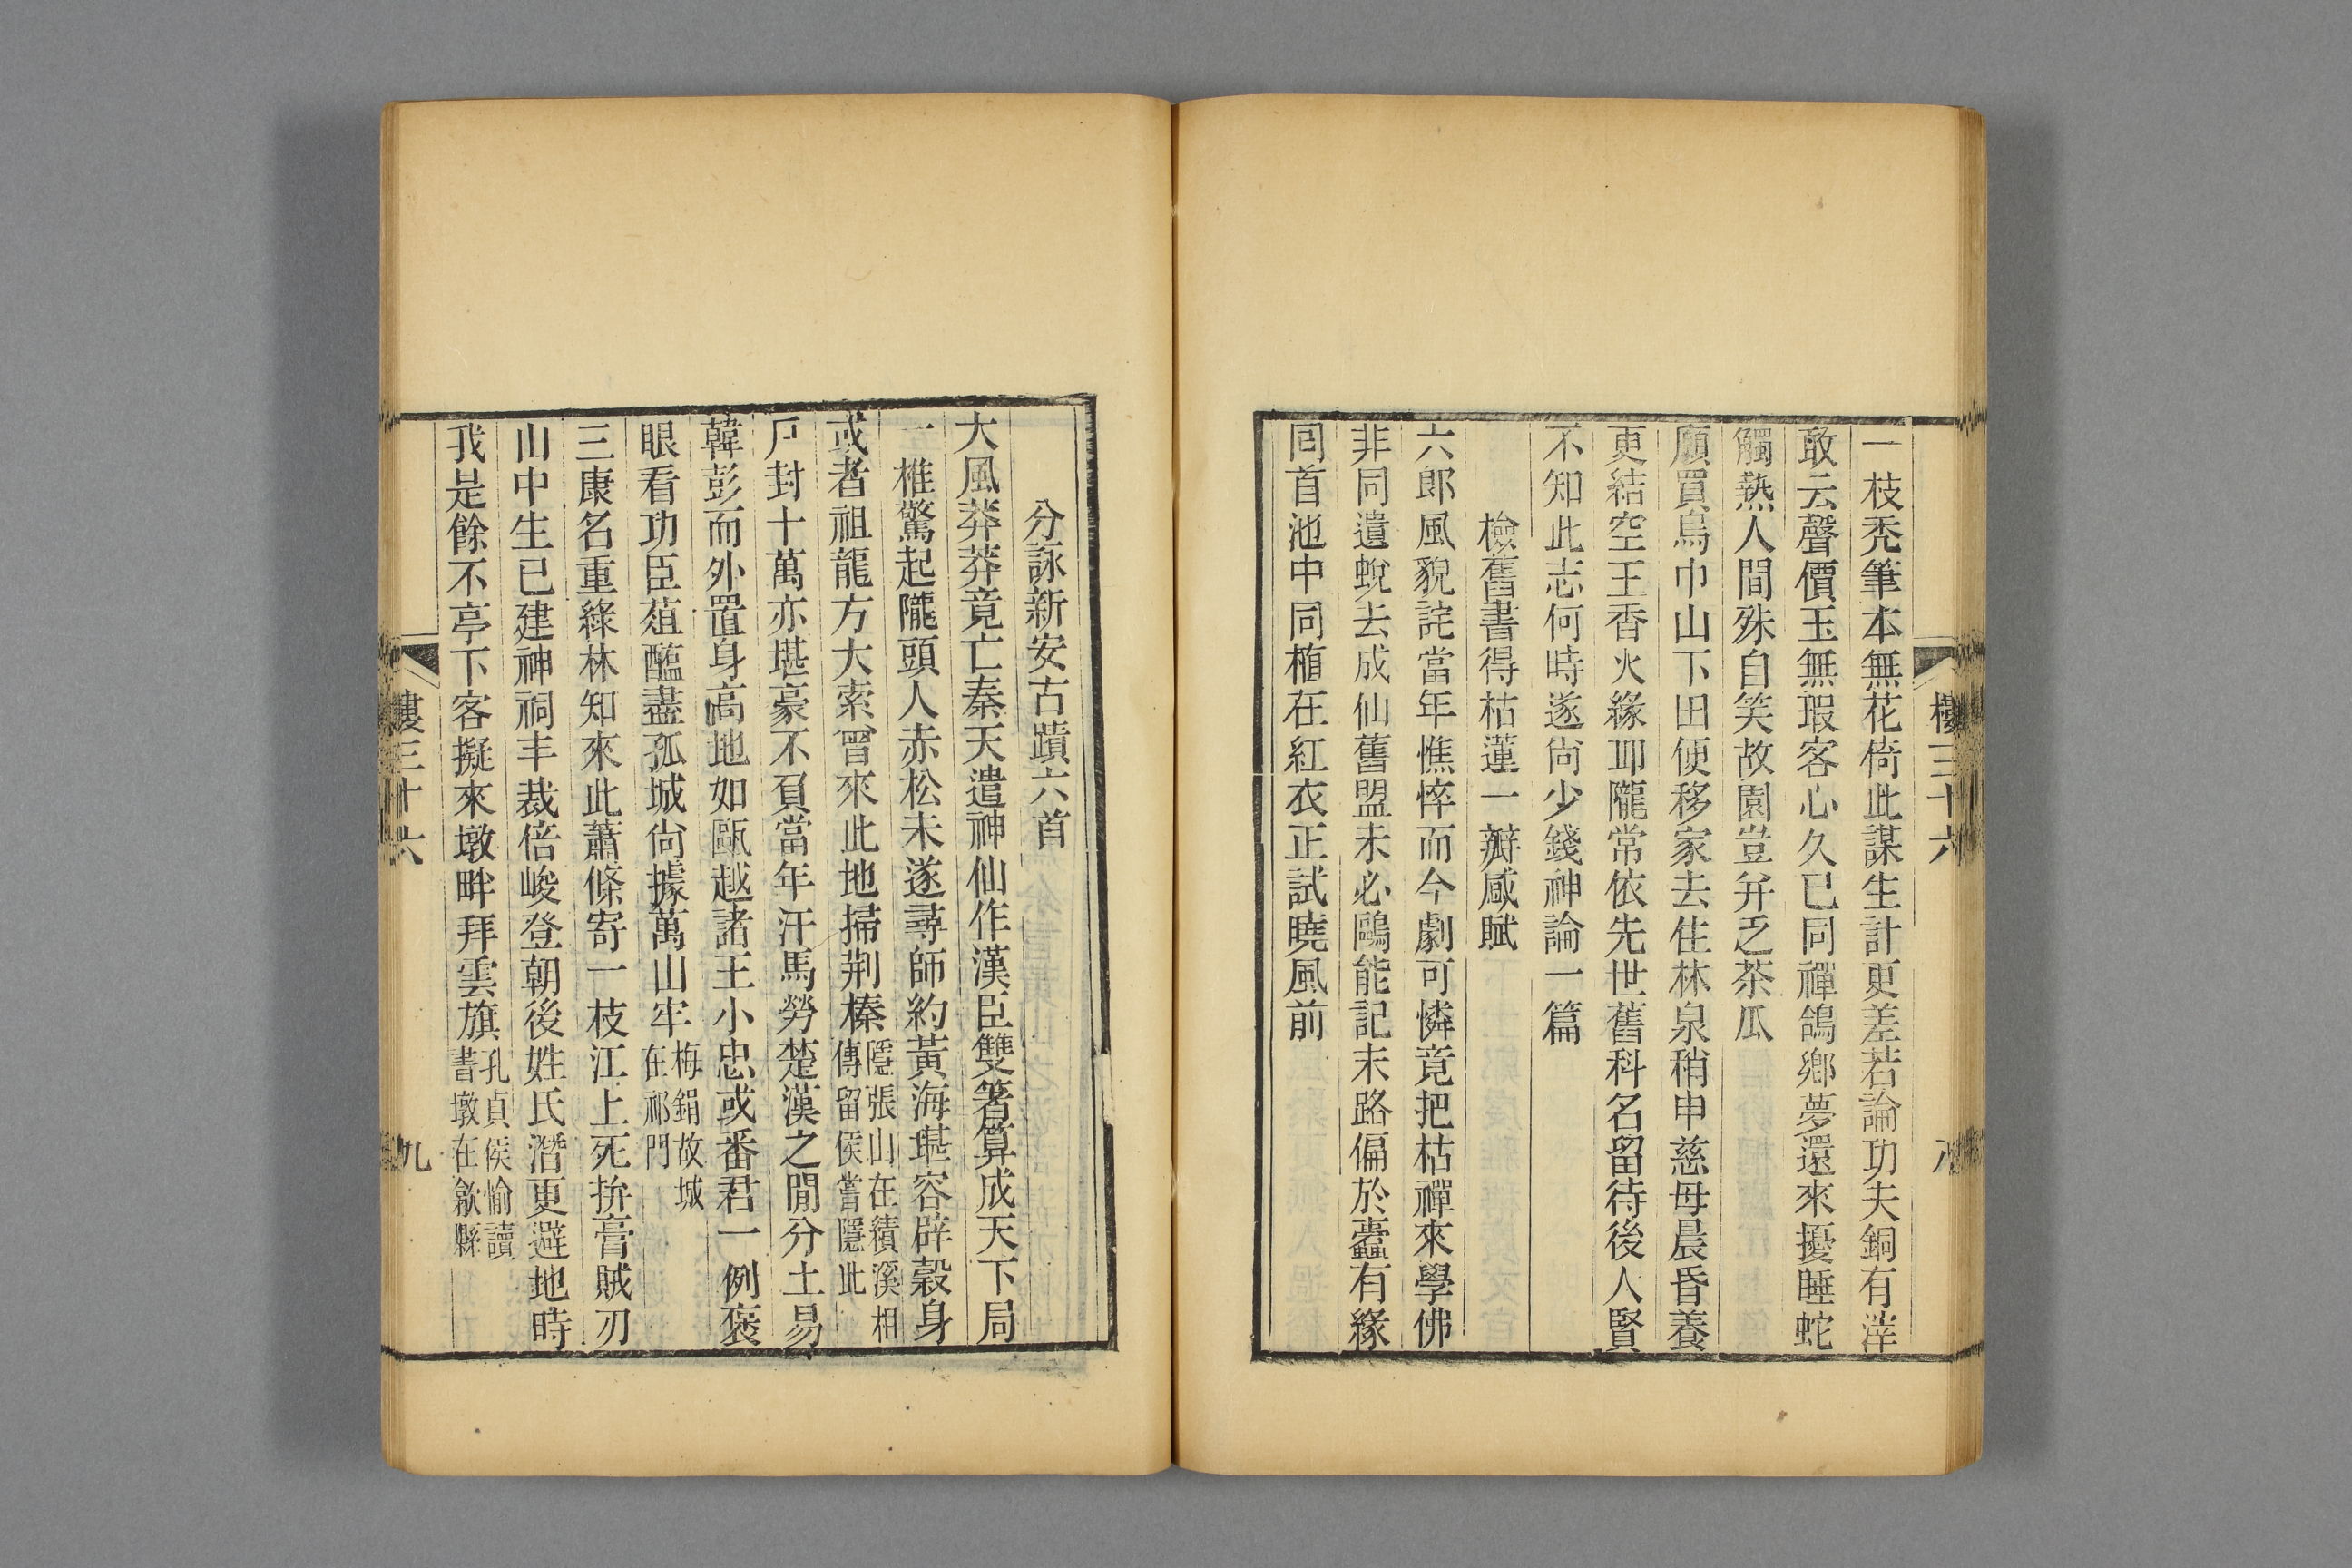 一枝禿筆本無花倚此謀生計更差若論功夫銅有滓
敢云聲價玉無瑕客心久已同禪鴿鄉夢還來擾睡蛇
觸熱人間殊自笑故園豈幷乏茶瓜
願買烏巾山下田便移家去住林泉稍申慈母晨昏養
更結空王香火緣邱隴常依先世舊科名留待後人賢
不知此志何時遂尙少錢神論一篇
檢舊書得枯蓮一瓣感賦
六郎風貌詫當年憔悴而今劇可憐竟把枯禪來學佛
非同遺蛻去成仙舊盟未必鷗能記末路偏於蠹有緣
回首池中同植在紅衣正試曉風前
樓三十六
八
分詠新安古蹟六首
大風莽莽竟亡秦天遣神仙作漢臣雙箸算成天下局
一椎驚起隴頭人赤松未遂尋師約黃海堪容辟穀身
或者祖龍方大索曾來此地掃荆榛隱張山在績溪相傳留侯嘗隱此
戸封十萬亦堪豪不負當年汗馬勞楚漢之閒分土易
韓彭而外置身高地如甌越諸王小忠或番君一例褒
眼看功臣葅醢盡孤城尙據萬山牢梅鋗故城在祁門
三康名重綠林知來此蕭條寄一枝江上死拚膏賊刃
山中生已建神祠丰裁倍峻登朝後姓氏潛更避地時
我是餘不亭下客擬來墩畔拜雲旗孔貞侯愉讀書墩在歙縣
樓三十六
九